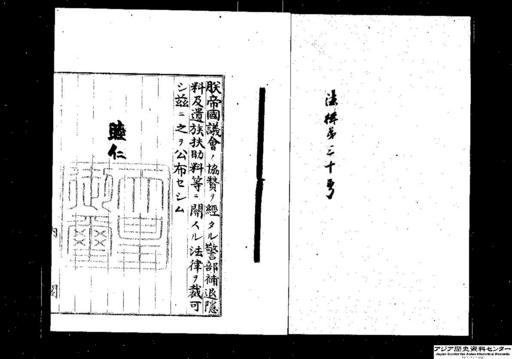 法律第三十号
朕帝國議會ノ協賛ヲ經タル警部補退隱
料及遺族扶助料等ニ關スル法律ヲ裁可
シ茲ニ之ヲ公布セシム
睦仁
内閣
アジア歴史資料センター
Japan Center for Asian Historical Records